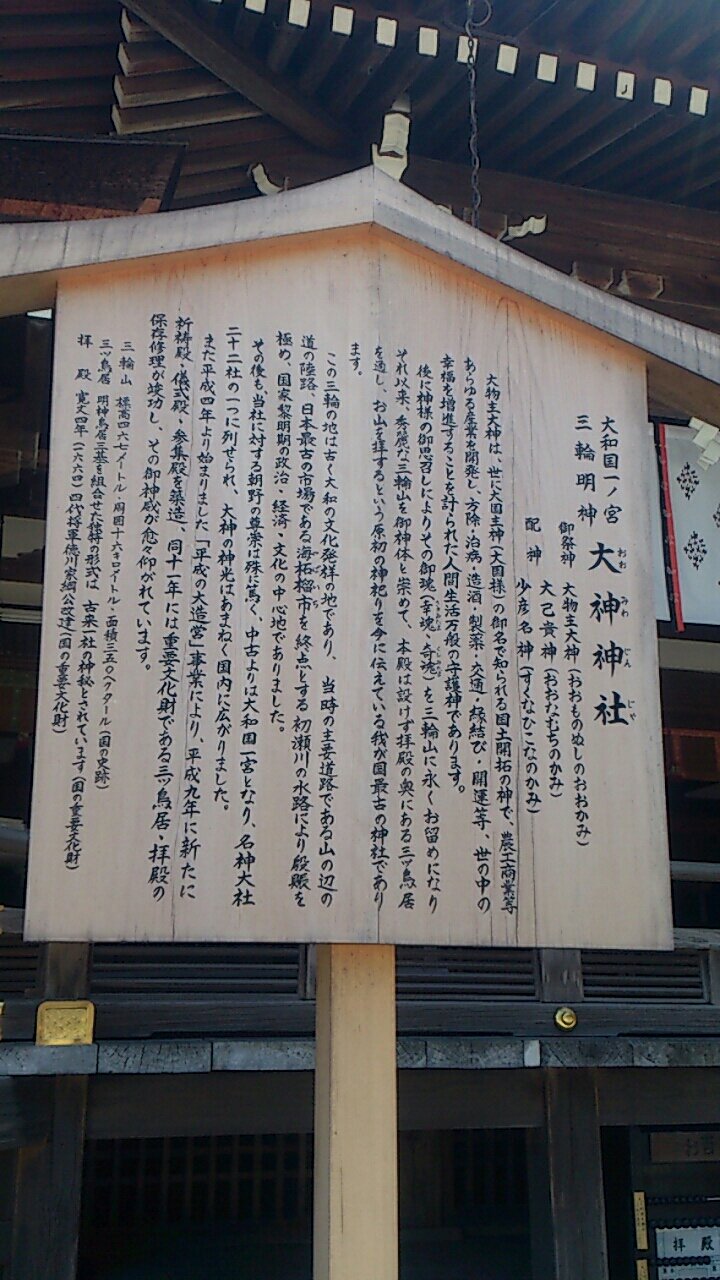 大和国一ノ宮
三輪明神 大神神社
おお みわ じん じゃ
御祭神 大物主大神(おおものぬしのおおかみ)
大己貴神(おおなむちのかみ)
配神 少彦名神(すくなひこなのかみ)
大物主大神は、世に大国主神(大国様)の御名で知られる国土開拓の神で、農工商業等
あらゆる産業を開発し、方除・治病・造酒・製薬・交通・縁結び・開運等、世の中の
幸福を増進することを計られた人間生活万般の守護神であります。
後に神様の御思召しによりその御魂(幸魂、奇魂)を三輪山に永くお留めになり
さきみたま くしみたま
それ以来、秀麗な三輪山を御神体と崇めて、本殿は設けず拝殿の奥にある三ツ鳥居
を通し、お山を拝するという原初の神祀りを今に伝えている我が国最古の神社であり
ます。
この三輪の地は古く大和の文化発祥の地であり、当時の主要道路である山の辺の
道の陸路、日本最古の市場である海柘榴市を終点とする初瀬川の水路により殷賑を
つばいち
極め、国家黎明期の政治・経済・文化の中心地でありました。
その後も当社に対する朝野の尊崇は殊に篤く、中古よりは大和国一宮となり、名神大社
二十二社の一つに列せられ、大神の神光はあまねく国内に広がりました。
また平成四年より始まりました「平成の大造営」事業により、平成九年に新たに
祈祷殿・儀式殿・参集殿を築造、同十一年には重要文化財である三ツ鳥居・拝殿の
保存修理が竣功し、その御神威が愈々仰がれています。
三輪山 標高四六七メートル・周囲十六キロメートル・面積三五〇ヘクタール(国の史跡)
三ツ鳥居 明神鳥居三基を組合せた独特の形式は、古来一社の神秘とされています(国の重要文化財)
拝殿 寛文四年(一六六四)四代将軍徳川家綱公改建(国の重要文化財)
拝殿